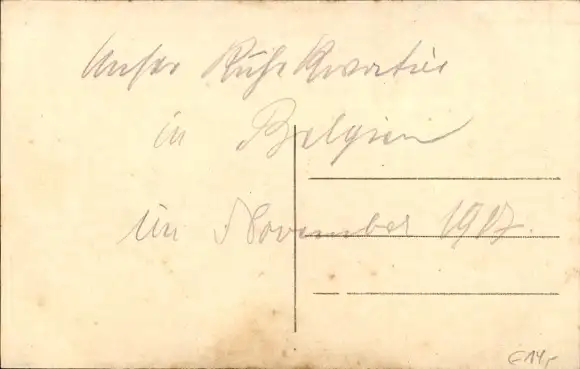 Unser Ruhe Quartier
in Belgien
im November 1917.
€ 14,-